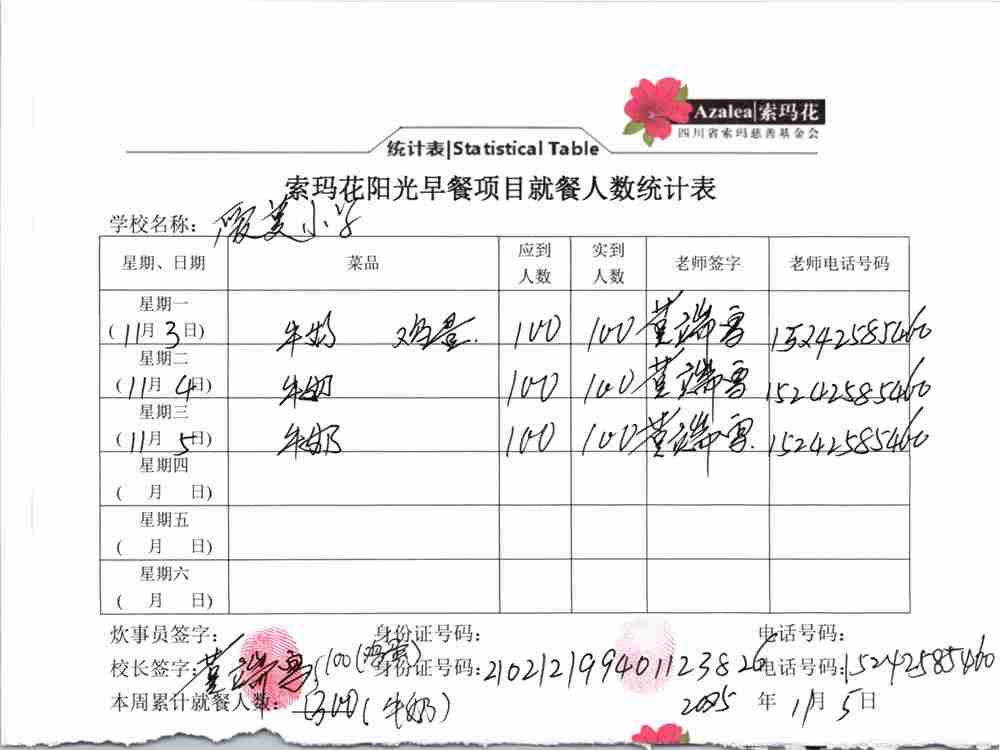 Azalea|索玛花
四川省索玛慈善基金会
统计表|Statistical Table
索玛花阳光早餐项目就餐人数统计表
学校名称: 小学
星期、日期 菜品 应到人数 实到人数 老师签字 老师电话号码
星期一 (11月3日) 牛奶 鸡蛋. 100 100 董端雪 15242585460
星期二 (11月4日) 牛奶 100 100 董端雪 15242585460
星期三 (11月5日) 牛奶 100 100 董端雪 15242585460
星期四 ( 月 日)
星期五 ( 月 日)
星期六 ( 月 日)
炊事员签字: 身份证号码: 电话号码:
校长签字: 董端雪 身份证号码: 210212199401123826 电话号码: 15242585460
100(鸡蛋)
本周累计就餐人数: 300(牛奶) 2025年11月5日